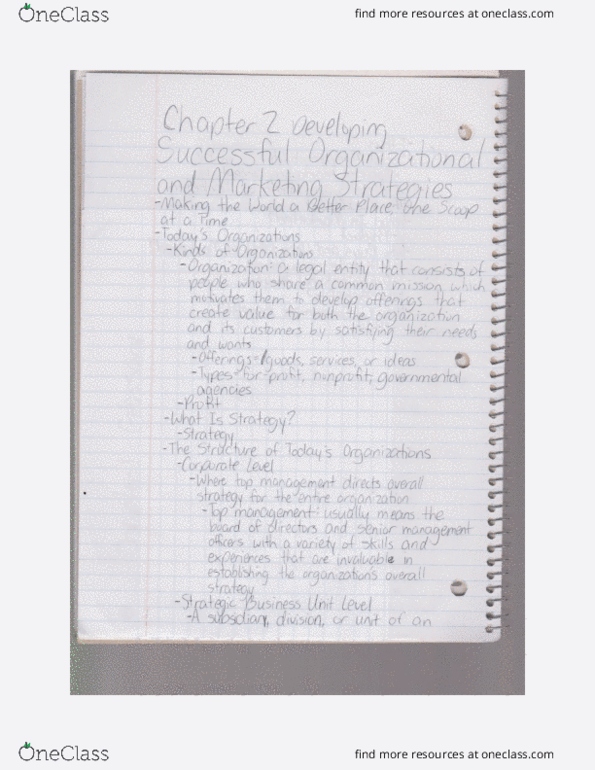 OneClass
find more resources at oneclass.com
Chapter 2 Developing
Successful Organizational
and Marketing Strategies
-Making the World a Better Place, One Scoop
at a Time
-Today's Organizations
-Kinds of Organizations
-Organization: a legal entity that consists of
people who share a common mission which
motivates them to develop offerings that
create value for both the organization
and its customers by satisfying their needs
and wants
-Offerings: goods, services, or ideas
-Types: for-profit, nonprofit, governmental
agencies
-Profit
-What Is Strategy?
-Strategy
-The Structure of Today's Organizations
-Corporate Level
-Where top management directs overall
strategy for the entire organization
-Top management: usually means the
board of directors and senior management
officers with a variety of skills and
experiences that are invaluable in
establishing the organization's overall
strategy
-Strategic Business Unit Level
-A subsidiary, division, or unit of an
OneClass
find more resources at oneclass.com